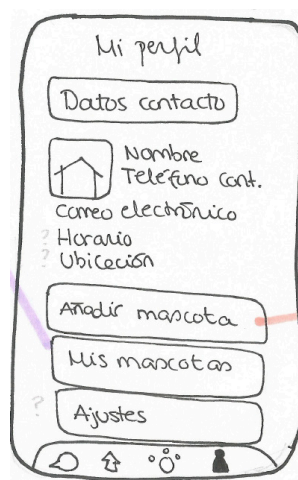 Mi perfil
Datos contacto
Nombre
Teléfono cont.
correo electrónico
? Horario
? Ubicación
Añadir mascota
Mis mascotas
? Ajustes